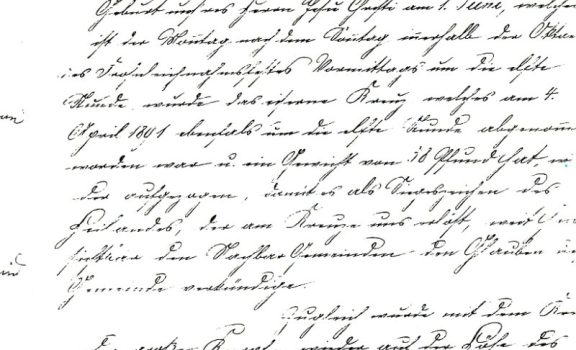 Geburt unseres Herrn Jesu Christi am 1. Juni, welcher
ist der Montag nach dem Sonntag innerhalb der Oktav
des Frohnleichnahmsfestes Vormittags um die elfte
Stunde wurde das eiserne Kreuz welches am 4.
April 1891 ebenfals um die elfte Stunde abgenomm
worden war u. ein Gewicht von 58 Pfund hat, wi
der aufgezogen, damit es als Siegeszeichen des
Heilandes, der am Kreuze uns erlöst, weit
sichtbar den Nachbar Gemeinden den Glauben
Gemeinde verkündige.
Zugleich wurde mit dem Kre
der wieder auf der Höhe des